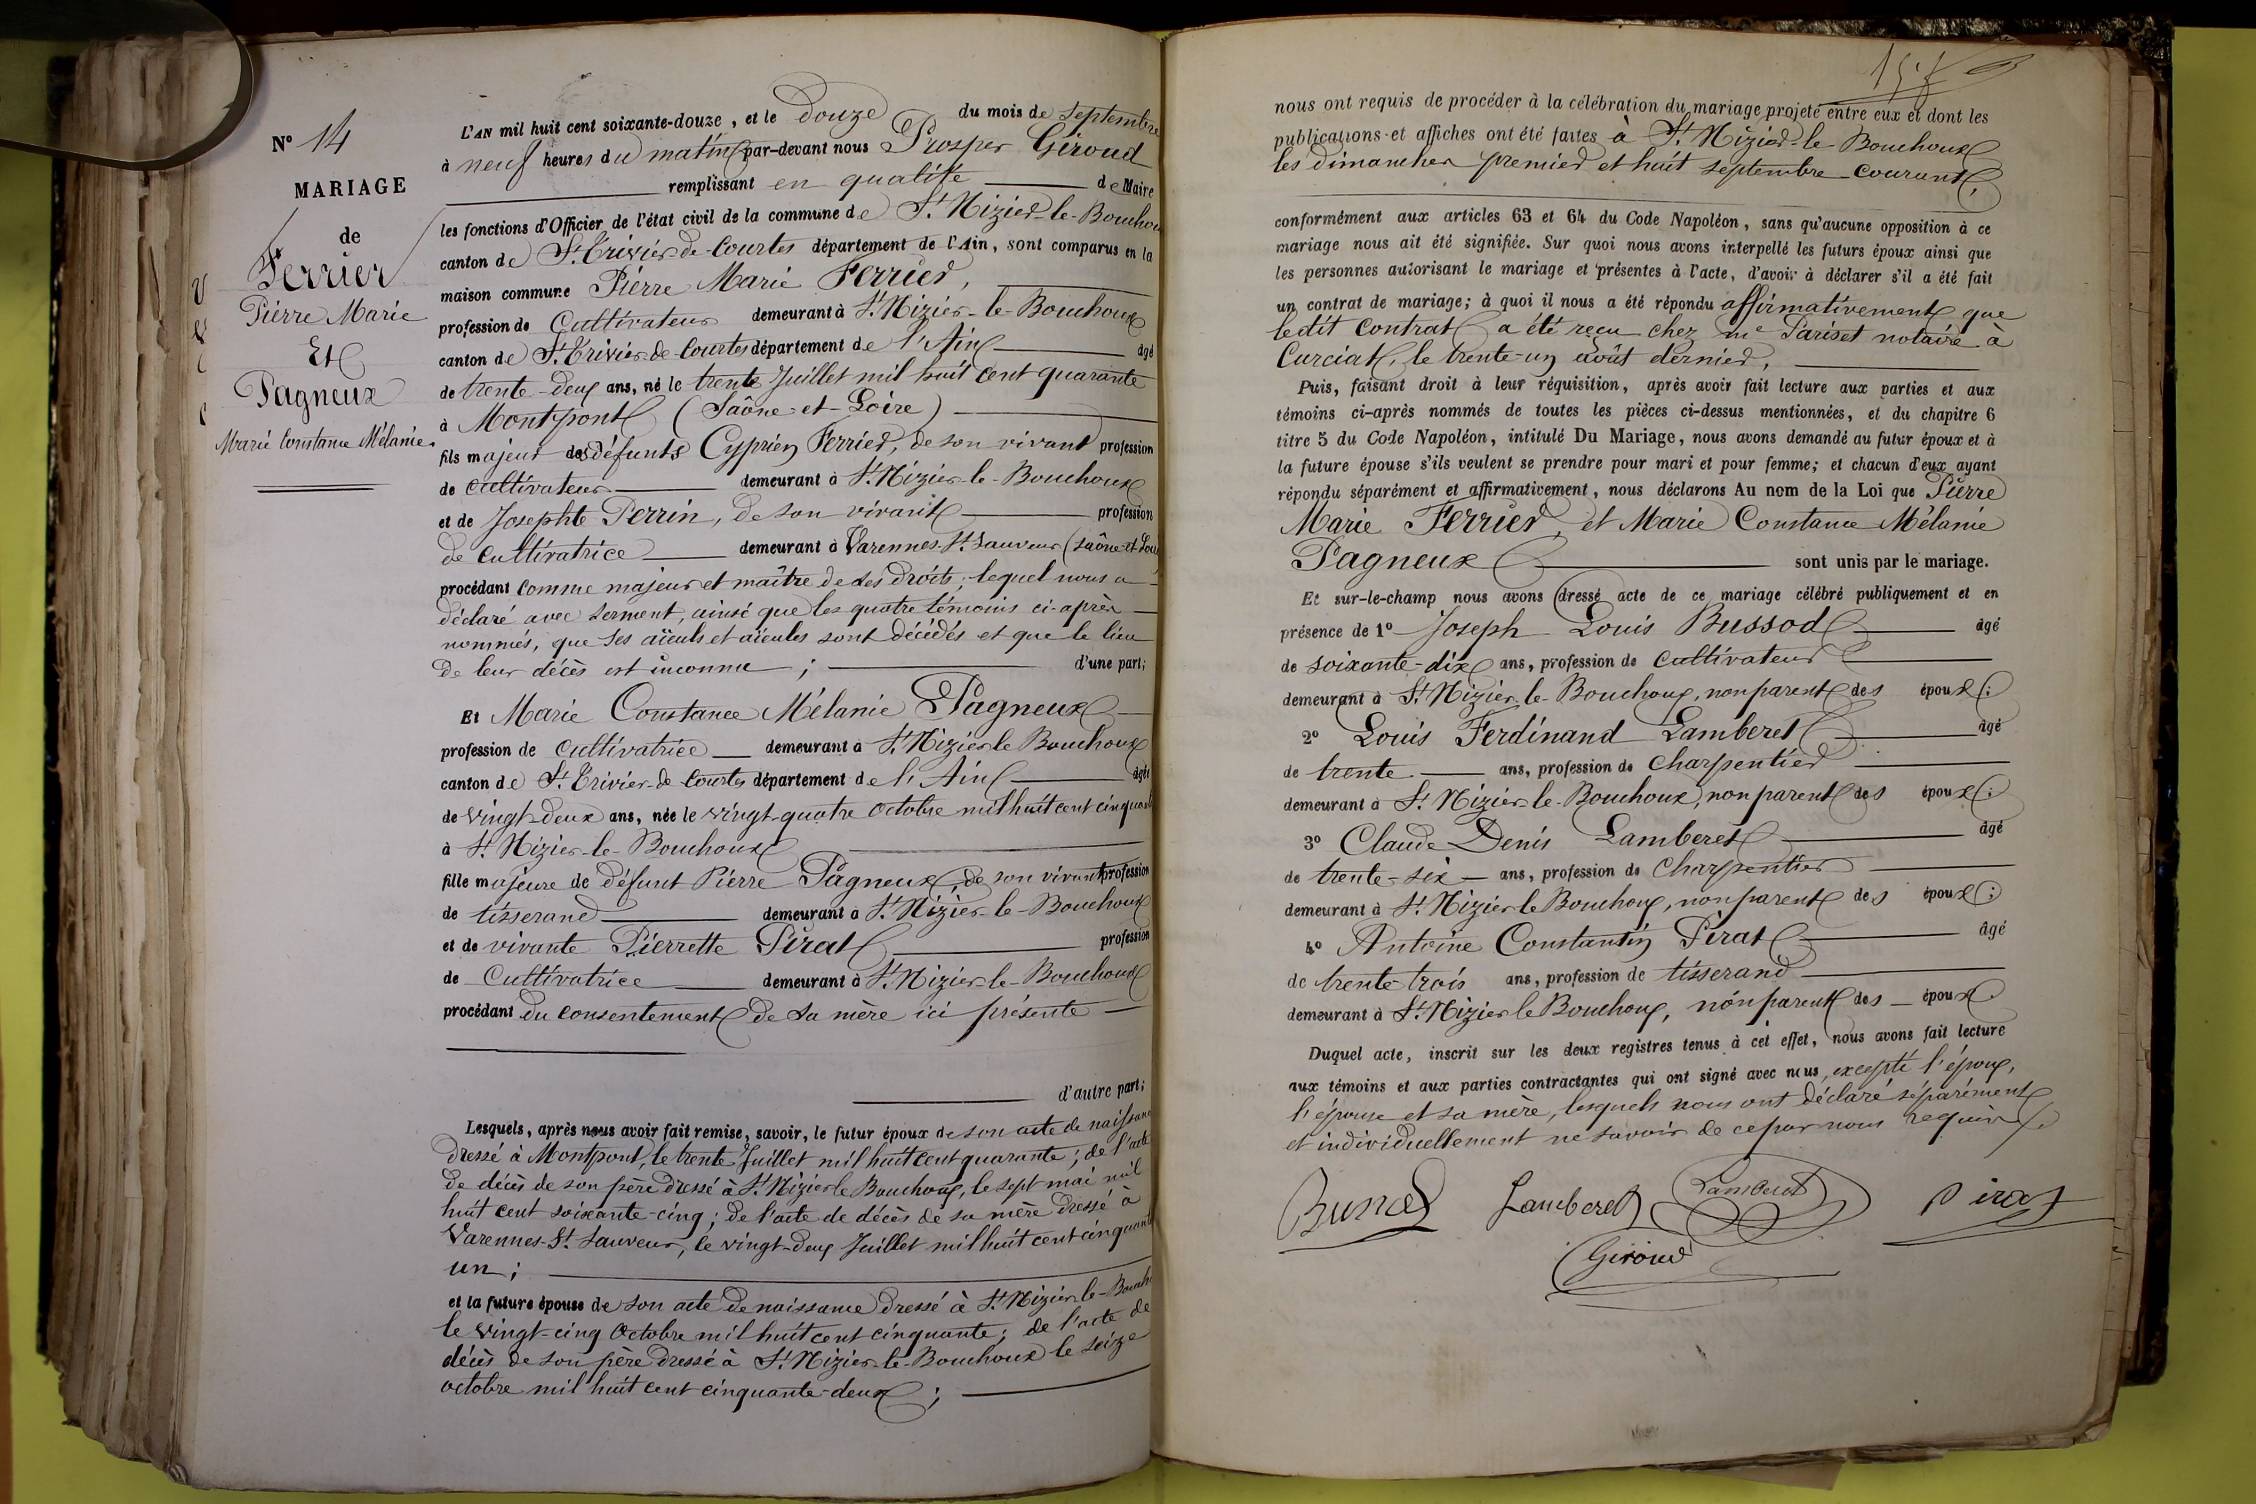 N° 14
MARIAGE
de
Ferrier
Pierre Marie
Et
Pagneux
Marie Constance Mélanie
L'AN mil huit cent soixante-douze, et le douze du mois de Septembre
à neuf heures du matin par-devant nous Prosper Giroud
remplissant en qualité de Maire
les fonctions d'Officier de l'état civil de la commune de St Nizier-le-Bouchoux
canton de St Trivier-de-Courtes département de l'Ain, sont comparus en la
maison commune Pierre Marie Ferrier,
profession de Cultivateur demeurant à St Nizier-le-Bouchoux
canton de St Trivier-de-Courtes département de l'Ain âgé
de trente-deux ans, né le trente Juillet mil huit cent quarante
à Montpont (Saône-et-Loire)
fils majeur des défunts Cyprien Ferrier, de son vivant profession
de cultivateur demeurant à St Nizier-le-Bouchoux
et de Josephte Perrin, de son vivant profession
de cultivatrice demeurant à Varennes-St Sauveur (Saône-et-Loire)
procédant comme majeur et maître de ses droits; lequel nous a
déclaré avec serment, ainsi que les quatre témoins ci-après
nommés, que ses aïeuls et aïeules sont décédés et que le lieu
de leur décès est inconnu; d'une part;
Et Marie Constance Mélanie Pagneux
profession de cultivatrice demeurant à St Nizier le Bouchoux
canton de St Trivier-de-Courtes département de l'Ain âgée
de vingt-deux ans, née le vingt-quatre Octobre mil huit cent cinquante
à St Nizier-le-Bouchoux
fille majeure de défunt Pierre Pagneux, de son vivant profession
de tisserand demeurant à St Nizier-le-Bouchoux
et de vivante Pierrette Pirat profession
de Cultivatrice demeurant à St Nizier-le-Bouchoux
procédant du consentement de sa mère ici présente
d'autre part;
Lesquels, après nous avoir fait remise, savoir, le futur époux de son acte de naissance
dressé à Montpont, le trente Juillet mil huit cent quarante; de l'acte
de décès de son père dressé à St Nizier le Bouchoux, le sept mai mil
huit cent soixante-cinq; de l'acte de décès de sa mère dressé à
Varennes-St Sauveur, le vingt-deux Juillet mil huit cent cinquante
un;
et la future épouse de son acte de naissance dressé à St Nizier-le-Bouch
le vingt-cinq Octobre mil huit cent cinquante; de l'acte de
décès de son père dressé à St Nizier-le-Bouchoux le seize
octobre mil huit cent cinquante-deux;
nous ont requis de procéder à la célébration du mariage projeté entre eux et dont les
publications et affiches ont été faites à St Nizier-le-Bouchoux
les dimanches premier et huit septembre courant,
conformément aux articles 63 et 64 du Code Napoléon, sans qu'aucune opposition à ce
mariage nous ait été signifiée. Sur quoi nous avons interpellé les futurs époux ainsi que
les personnes autorisant le mariage et présentes à l'acte, d'avoir à déclarer s'il a été fait
un contrat de mariage; à quoi il nous a été répondu affirmativement que
ledit contrat a été reçu chez Me Pariset notaire à
Curciat, le trente-un août dernier,
Puis, faisant droit à leur réquisition, après avoir fait lecture aux parties et aux
témoins ci-après nommés de toutes les pièces ci-dessus mentionnées, et du chapitre 6
titre 5 du Code Napoléon, intitulé Du Mariage, nous avons demandé au futur époux et à
la future épouse s'ils veulent se prendre pour mari et pour femme; et chacun d'eux ayant
répondu séparément et affirmativement, nous déclarons Au nom de la Loi que Pierre
Marie Ferrier, et Marie Constance Mélanie
Pagneux sont unis par le mariage.
Et sur-le-champ nous avons dressé acte de ce mariage célébré publiquement et en
présence de 1° Joseph Louis Bussod âgé
de soixante-dix ans, profession de cultivateur
demeurant à St Nizier-le-Bouchoux, non parent des époux;
2° Louis Ferdinand Lamberet âgé
de trente ans, profession de charpentier
demeurant à St Nizier-le-Bouchoux, non parent des époux;
3° Claude Denis Lamberet âgé
de trente-six ans, profession de charpentier
demeurant à St Nizier le Bouchoux, non parent des époux;
4° Antoine Constantin Pirat âgé
de trente-trois ans, profession de tisserand
demeurant à St Nizier le Bouchoux, non parent des époux
Duquel acte, inscrit sur les deux registres tenus à cet effet, nous avons fait lecture
aux témoins et aux parties contractantes qui ont signé avec nous, excepté l'époux,
l'épouse et sa mère, lesquels nous ont déclaré séparément
et individuellement ne savoir de ce par nous requis.
Bussod Lamberet Lamberet Pirat
Giroud